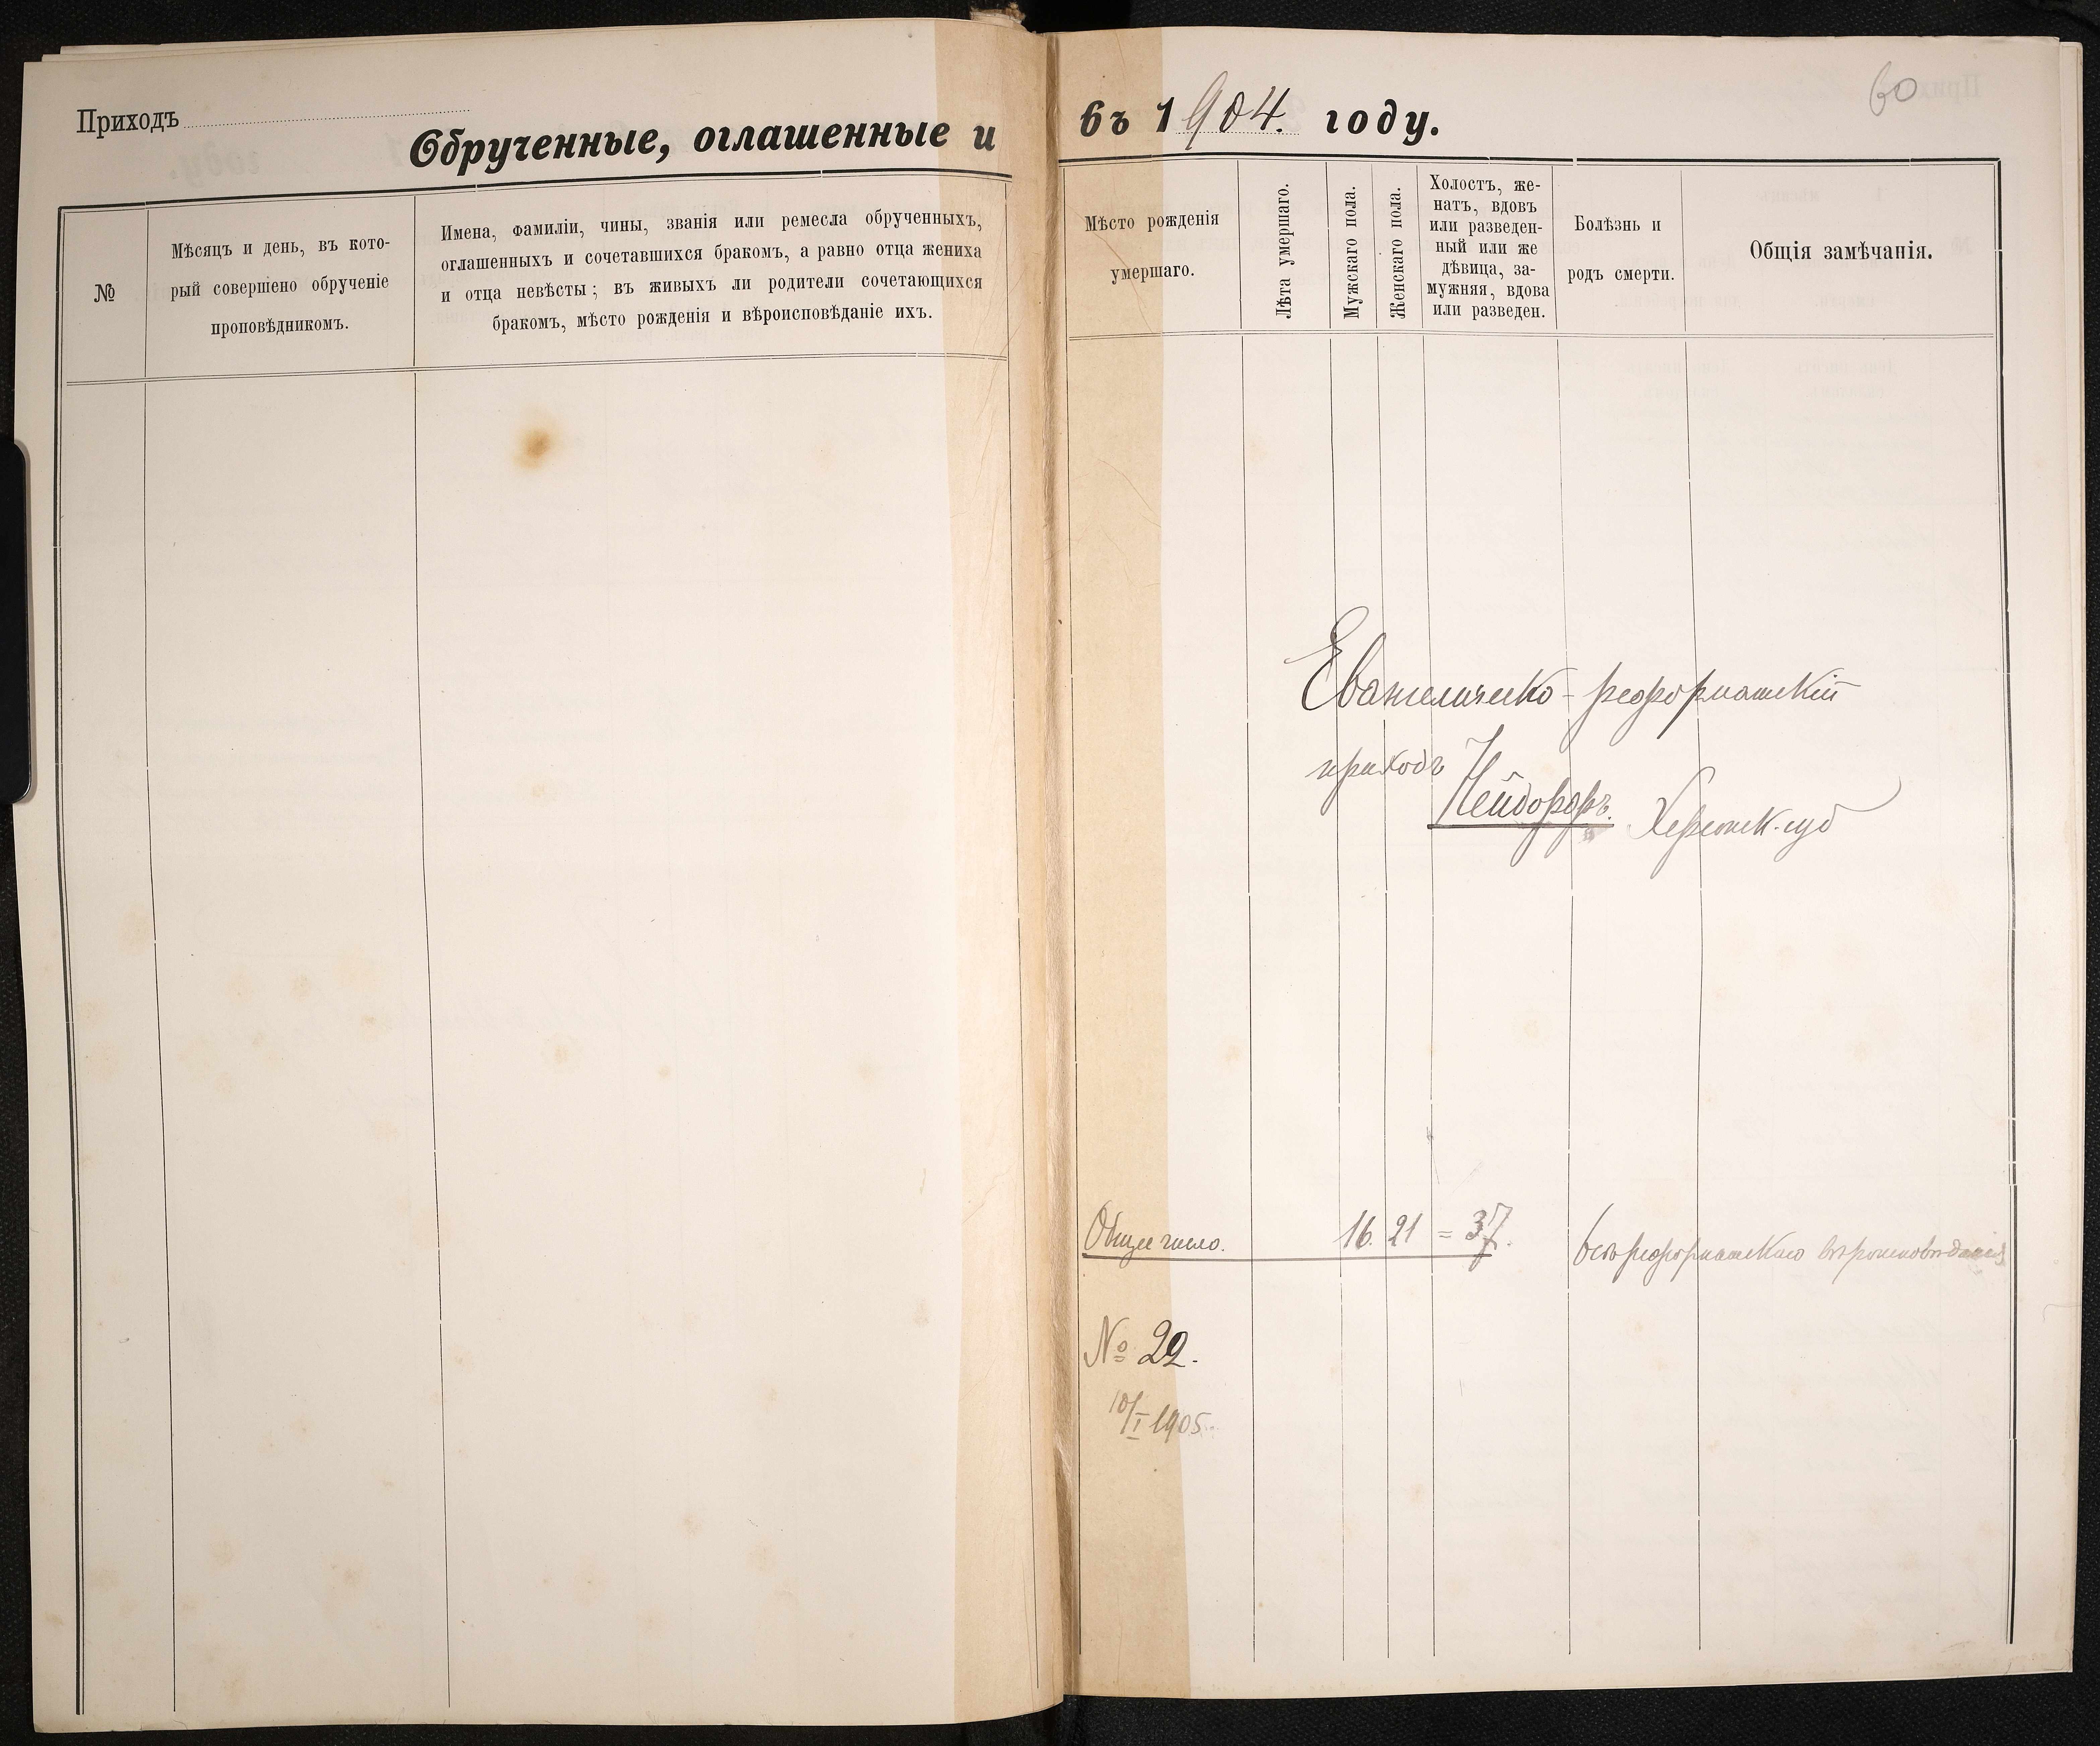 Приходъ
Обрученные, оглашенные и
№
Мѣсяцъ и день, въ кото-
рый совершено обрученіе
проповѣдникомъ.
Имена, фамиліи, чины, званія или ремесла обрученныхъ,
оглашенныхъ и сочетавшихся бракомъ, а равно отца жениха
и отца невѣсты; въ живыхъ ли родители сочетающихся
бракомъ, мѣсто рожденія и вѣроисповѣданіе ихъ.
60
въ 1904. году.
Мѣсто рожденія
умершаго.
Лѣта умершаго.
Мужскаго пола.
Женскаго пола.
Холостъ, же-
натъ, вдовъ
или разведен-
ный или же
дѣвица, за-
мужняя, вдова
или разведен.
Болѣзнь и
родъ смерти.
Общія замѣчанія.
Евангелическо-реформатскій
приходъ Нейдорфъ. Херсонск. губ
Общее число. 16. 21 = 37. все реформатскаго вѣроисповѣданія
№ 22.
10/I 1905.